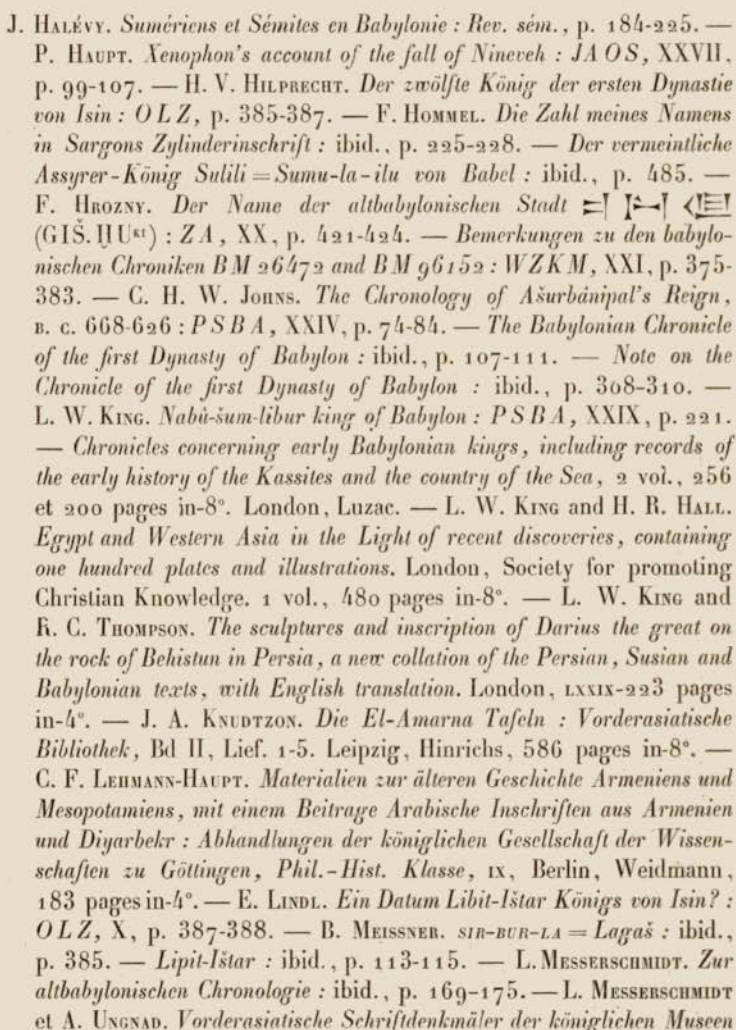 J. HALÉVY. Sumériens et Sémites en Babylonie : Rev. sém., p. 184-225. —
P. HAUPT. Xenophon's account of the fall of Nineveh : JAOS, XXVII,
p. 99-107. — H. V. HILPRECHT. Der zwölfte König der ersten Dynastie
von Isin : OLZ, p. 385-387. — F. HOMMEL. Die Zahl meines Namens
in Sargons Zylinderinschrift : ibid., p. 225-228. — Der vermeintliche
Assyrer-König Sulili = Sumu-la-ilu von Babel : ibid., p. 485. —
F. HROZNY. Der Name der altbabylonischen Stadt
(GIŠ.ḪUᴷᴵ) : ZA, XX, p. 421-424. — Bemerkungen zu den babylo-
nischen Chroniken BM 26472 and BM 96152 : WZKM, XXI, p. 375-
383. — C. H. W. JOHNS. The Chronology of Ašurbânipal's Reign,
B. C. 668-626 : PSBA, XXIV, p. 74-84. — The Babylonian Chronicle
of the first Dynasty of Babylon : ibid., p. 107-111. — Note on the
Chronicle of the first Dynasty of Babylon : ibid., p. 308-310. —
L. W. KING. Nabû-šum-libur king of Babylon : PSBA, XXIX, p. 221.
— Chronicles concerning early Babylonian kings, including records of
the early history of the Kassites and the country of the Sea, 2 vol., 256
et 200 pages in-8°. London, Luzac. — L. W. KING and H. R. HALL.
Egypt and Western Asia in the Light of recent discoveries, containing
one hundred plates and illustrations. London, Society for promoting
Christian Knowledge. 1 vol., 480 pages in-8°. — L. W. KING and
R. C. THOMPSON. The sculptures and inscription of Darius the great on
the rock of Behistun in Persia, a new collation of the Persian, Susian and
Babylonian texts, with English translation. London, LXXIX-223 pages
in-4°. — J. A. KNUDTZON. Die El-Amarna Tafeln : Vorderasiatische
Bibliothek, Bd II, Lief. 1-5. Leipzig, Hinrichs, 586 pages in-8°. —
C. F. LEHMANN-HAUPT. Materialien zur älteren Geschichte Armeniens und
Mesopotamiens, mit einem Beitrage Arabische Inschriften aus Armenien
und Diyarbekr : Abhandlungen der königlichen Gesellschaft der Wissen-
schaften zu Göttingen, Phil.-Hist. Klasse, IX, Berlin, Weidmann,
183 pages in-4°. — E. LINDL. Ein Datum Libit-Ištar Königs von Isin? :
OLZ, X, p. 387-388. — B. MEISSNER. SIR-BUR-LA = Lagaš : ibid.,
p. 385. — Lipit-Ištar : ibid., p. 113-115. — L. MESSERSCHMIDT. Zur
altbabylonischen Chronologie : ibid., p. 169-175. — L. MESSERSCHMIDT
et A. UNGNAD. Vorderasiatische Schriftdenkmäler der königlichen Museen